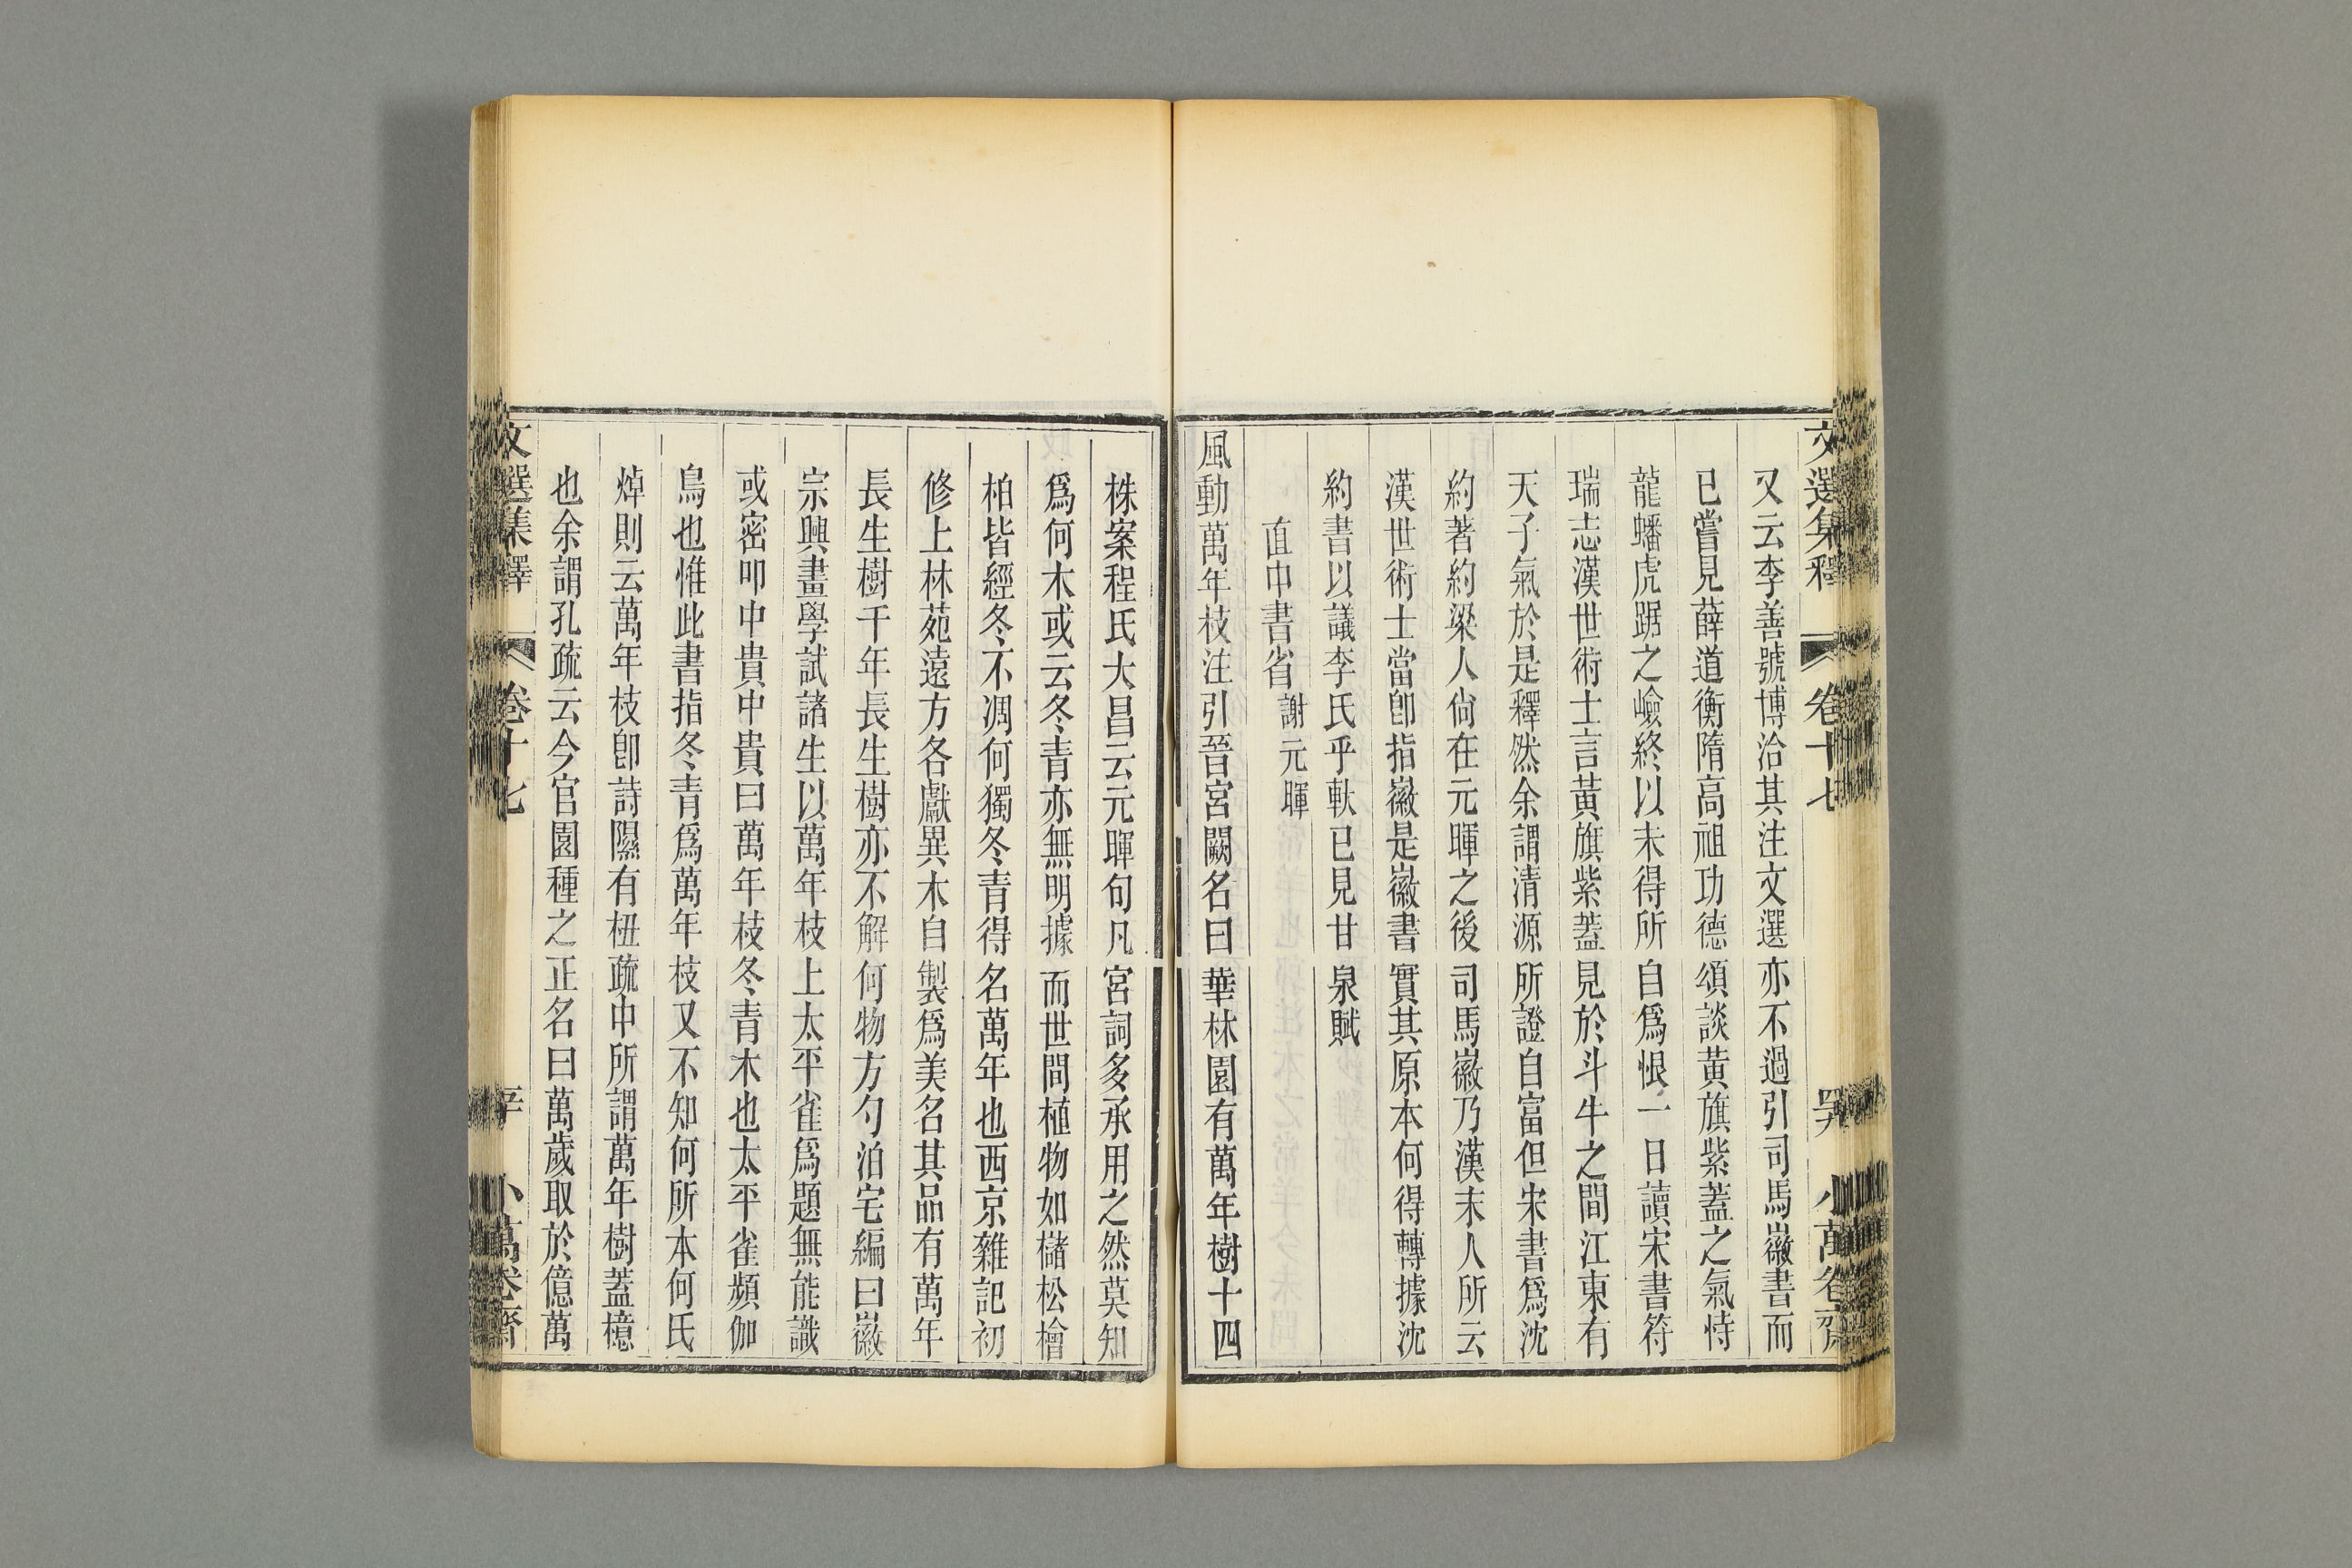 文選集釋 卷十七 小萬卷齋
又云李善號博洽其注文選亦不過引司馬徽書而
已嘗見薛道衡隋高祖功德頌談黃旗紫蓋之氣恃
龍蟠虎踞之嶮終以未得所自爲恨一日讀宋書符
瑞志漢世術士言黃旗紫蓋見於斗牛之間江東有
天子氣於是釋然余謂清源所證自富但宋書爲沈
約著約梁人尙在元暉之後司馬徽乃漢末人所云
漢世術士當卽指徽是徽書實其原本何得轉據沈
約書以議李氏乎軑已見甘泉賦
直中書省謝元暉
風動萬年枝注引晉宮闕名曰華林園有萬年樹十四
株案程氏大昌云元暉句凡宮詞多承用之然莫知
爲何木或云冬青亦無明據而世間植物如櫧松檜
柏皆經冬不凋何獨冬青得名萬年也西京雜記初
修上林苑遠方各獻異木自製爲美名其品有萬年
長生樹千年長生樹亦不解何物方勺泊宅編曰徽
宗興畫學試諸生以萬年枝上太平雀爲題無能識
或密叩中貴中貴曰萬年枝冬青木也太平雀頻伽
鳥也惟此書指冬青爲萬年枝又不知何所本何氏
焯則云萬年枝卽詩隰有杻疏中所謂萬年樹蓋檍
也余謂孔疏云今官園種之正名曰萬歲取於億萬
文選集釋 卷十七 小萬卷齋